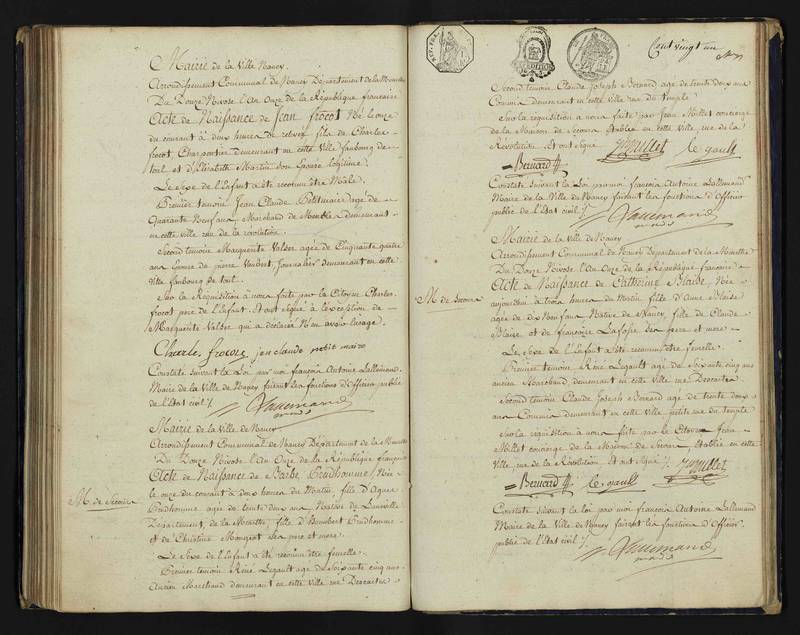 Mairie de la Ville Nancy.
Arrondissement Communal de Nancy Département de la Meurthe
Du Douze Nivose l'An Onze de la République française
Acte de Naissance de Jean frocot Né le onze
du courant à deux heures de relevée fils de Charles
frocot, Charpentier demeurant en cette Ville faubourg de
toul et d'Elizabeth Martin son Epouse légitime.
Le Sexe de l'Enfant a été reconnu être Mâle.
Premier temoin Jean Claude Petitmaire agé de
Quarante Neuf ans, Marchand de Meuble demeurant
en cette ville rue de la révolution.
Second temoin Marguerite Valser agée de Cinquante quatre
ans Epouse de pierre Voubert, Journalier demeurant en cette
Ville faubourg de toul.
Sur la Réquisition à nous faite par le Citoyen Charles
frocot pere de l'Enfant. Et ont signé à l'éxception de
Marguerite Valser qui a déclaré N'en avoir l'usage.
Charle frocot jean claude petit maire
Constaté suivant la Loi par moi françois Antoine Lallemand
Maire de la Ville de Nancy faisant les fonctions d'Officier public
de l'Etat civil /.
Lallemand
Mairie de la Ville de Nancy.
Arrondissement Communal de Nancy Département de la Meurthe
Du Douze Nivose l'An Onze de la République française
Acte de Naissance de Barbe Prudhomme, Née
M. de Secours
le onze du courant à dix heures du Matin, fille d'Agnes
Prudhomme agée de trente deux ans Native de Lunéville
Département, de la Meurthe, fille d'Humbert Prudhomme
et de Christine Mongeot ses pere et mere.
Le Sexe de l'Enfant a été reconnu être femelle.
Premier temoin Réné Legault agé de Soixante cinq ans
Ancien Marchand demeurant en cette Ville rue Descartes
Cent vingt un
Second temoin Claude Joseph Bernard agé de trente deux ans
Commis demeurant en cette Ville rue du temple
Sur la requisition à nous faite par Jean Millet concierge
de la Maison de Secours Etablie en cette Ville, rue de la
Révolution. Et ont signé
Millet le gault
Bernard
Constaté suivant la Loi par moi françois Antoine Lallemand
Maire de la Ville de Nancy faisant les fonctions d'Officier
public de l'Etat civil /.
Lallemand
Mairie de la Ville de Nancy
Arrondissement Communal de Nancy Département de la Meurthe
Du Douze Nivose l'An Onze de la République française
M. de Secours
Acte de Naissance de Catherine Blaise, Née
aujourd'hui à trois heures du Matin fille d'Anne Blaise
agée de dix Neuf ans Native de Nancy, fille de Claude
Blaise, et de françoise Lafosse ses pere et mere
Le Sexe de l'Enfant a été reconnu être femelle.
Premier temoin Réné Legault agé de Soixante cinq ans
ancien Marchand, demeurant en cette Ville rue Descartes
Second temoin Claude Joseph Bernard agé de trente deux
ans Commis demeurant en cette Ville petite rue du temple
Sur la requisition à nous faite par le Citoyen Jean
Millet concierge de la Maison de Secours Etablie en cette
Ville, rue de la Révolution. Et ont signé /. Millet
Bernard le gault
Constaté suivant la Loi par moi françois Antoine Lallemand
Maire de la Ville de Nancy faisant les fonctions d'Officier
public de l'Etat civil /.
Lallemand